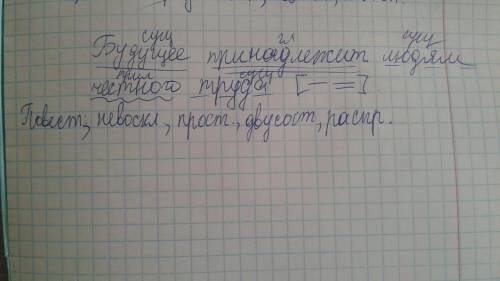 сущ гл сущ
Будущее принадлежит людям
прил сущ
честного труда [— =]
Повест, невоскл, прост, двусост, распр.